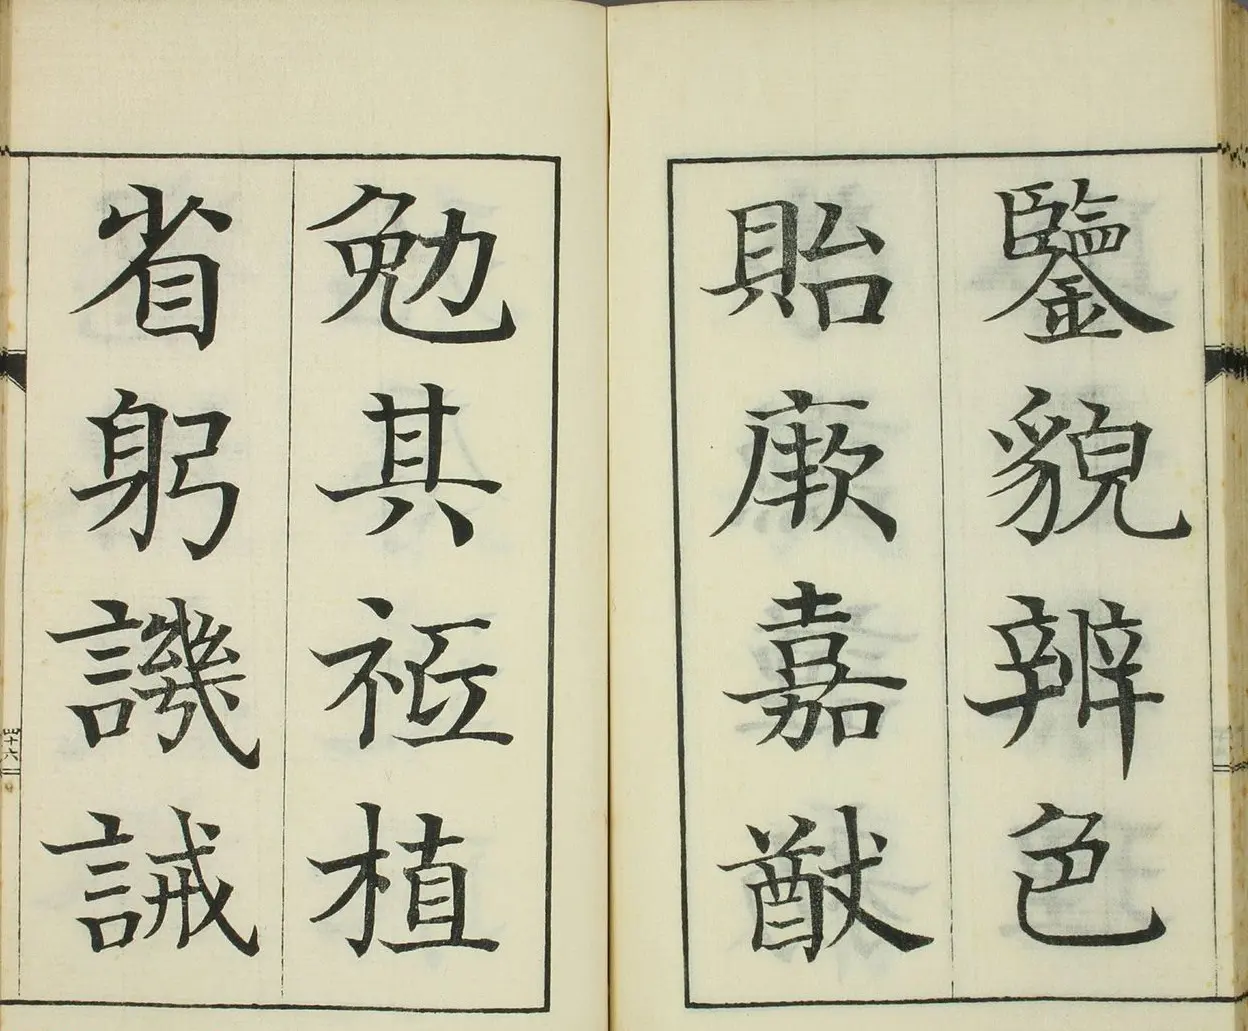 鑒貌辨色
貽厥嘉猷
勉其祗植
省躬譏誡
十六